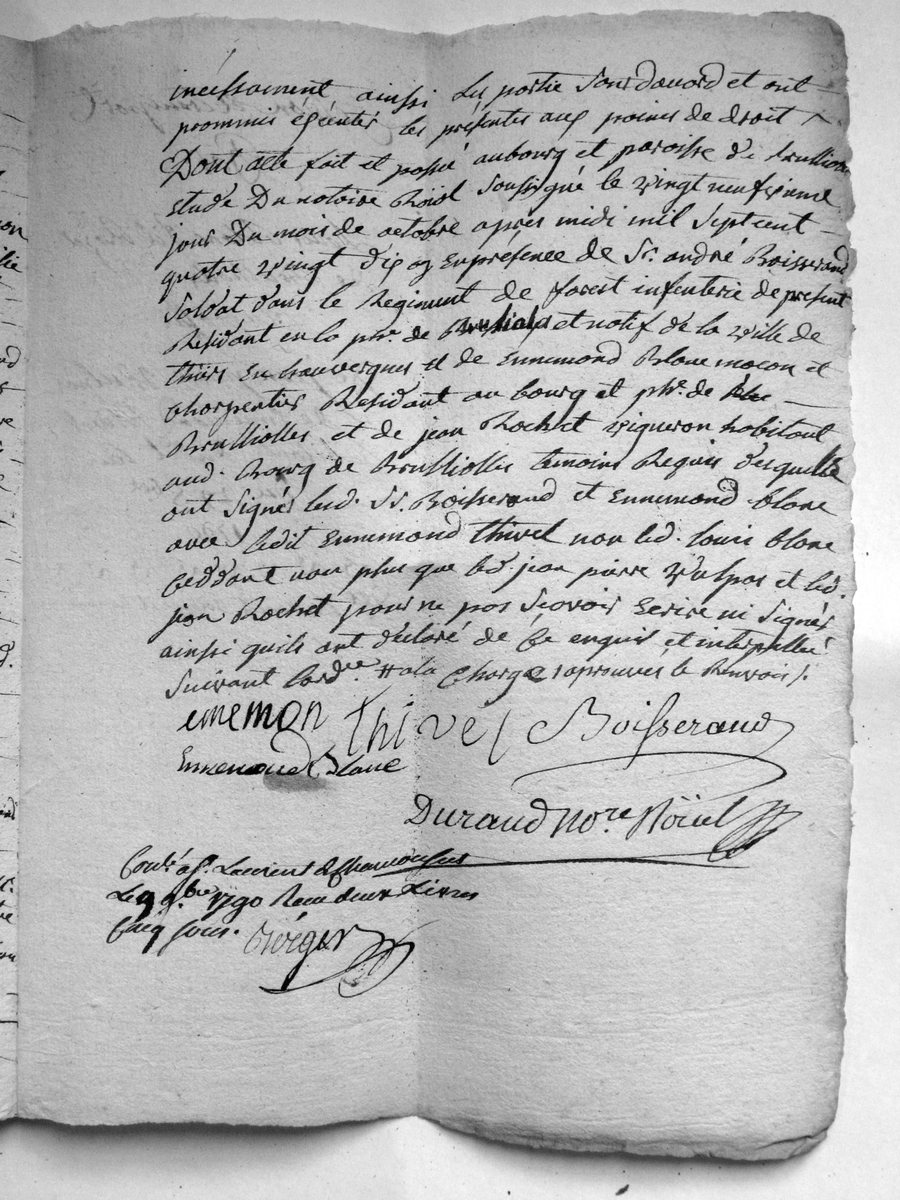 incessament ainsi les partie sont daccord et ont
prommis éxécuter les présentes aux peines de droit
Dont acte fait et passé au bourg et paroisse de brullioles
etude Du notoire Roïal soussigné le vingt neufvieme
jour Du mois de octobre après midi mil sept cent
quatre vingt dix en présence de Sr. andré Boisserand
Soldat dans le Regiment de forest infenterie de present
Residant en la phe. de Brulliole et notif de la ville de
thiers en hauvergnes et de Ennemond Blanc maçon et
charpentier Residant au bourg et phe. de
Brulliolles et de jean Rochet vigneron habitant
aud. Bourg de Brulliolles temoins Requis desquelle
ont signés led. Sr. Boisserand et Ennemond blanc
avec ledit Ennemond thivel non led. louis blanc
ceddant non plus que led. jean pierre Vulpas et led.
jean Rochet pour ne pas sçavoir Ecrire ni signér
ainsi quils ont déclaré de ce enquis et interpellé
suivant lordce. # a la charge aprouvés le Renvois /.
enemon thivel Boisserand
Ennemond Blanc
Durand Nore. Röial
Conlé. a St. Laurent de Chamousset
Le 9 9bre 1790 Recu deux Livres
Cinq sous.